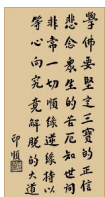 學佛要堅定三寶的正信
悲念眾生的苦厄知世間
非常一切順緣逆緣持以
等心向究竟解脫的大道
印順